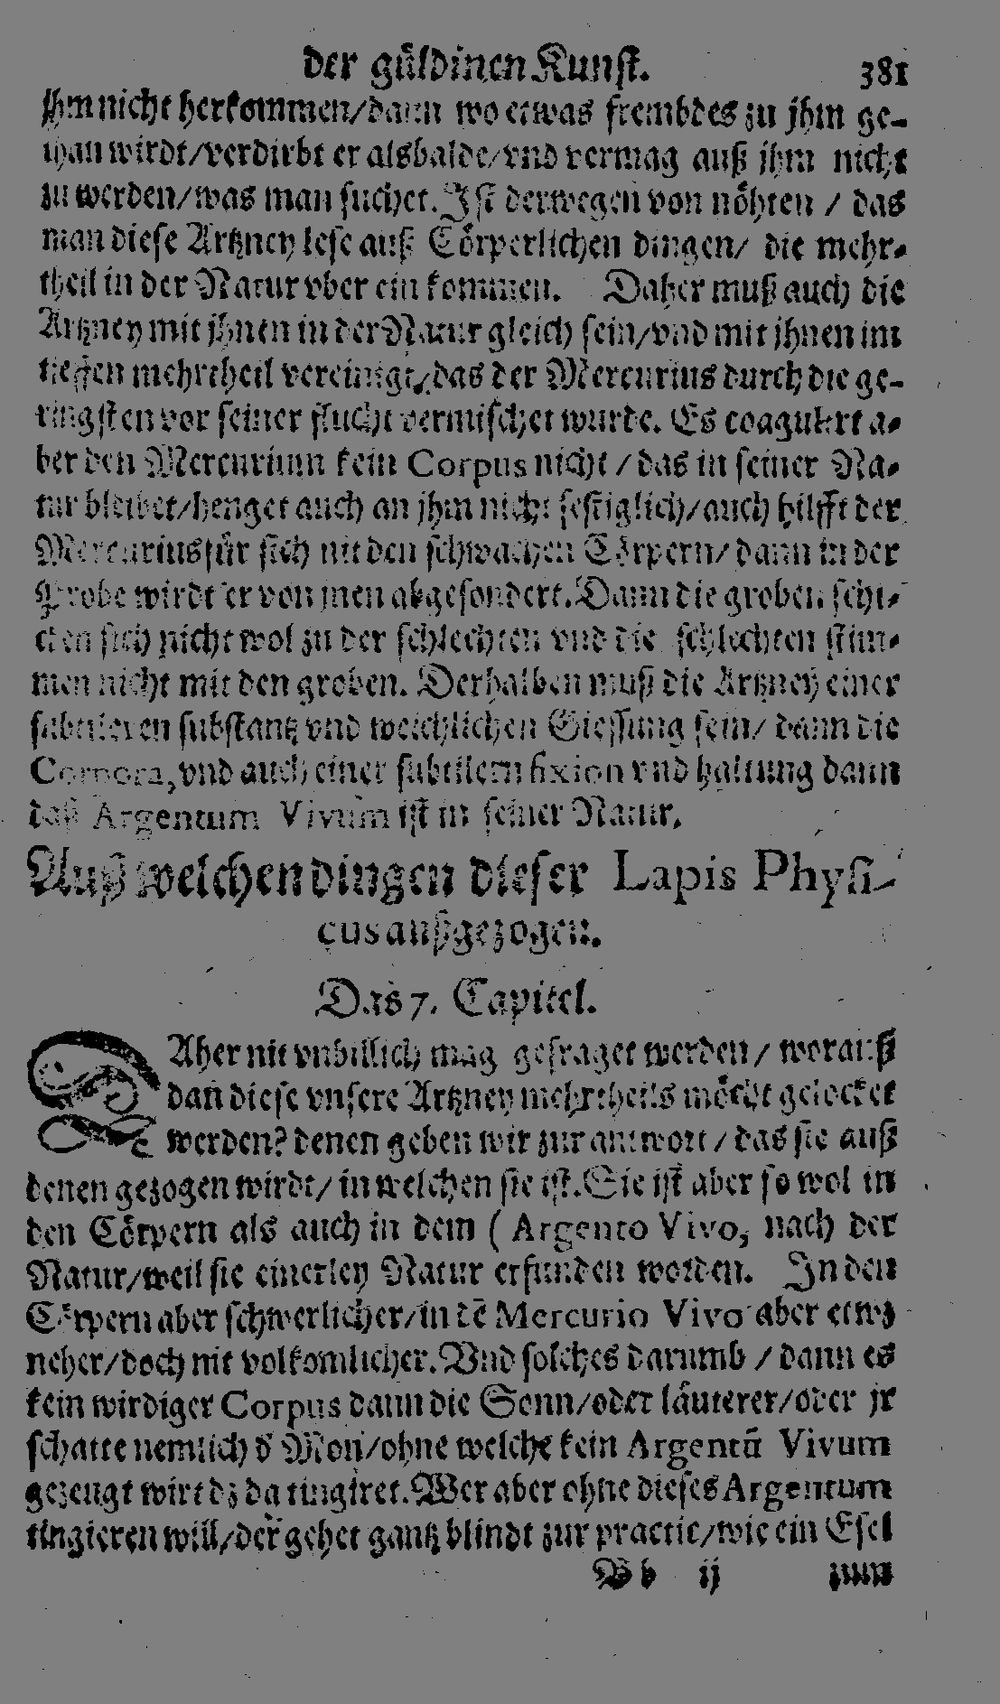 der güldinen Kunst. 381
jhm nicht herkommen/dann wo etwas frembdes zu jhm ge-
than wirdt/verdirbt er alsbalde/vnd vermag auß jhm nicht
zu werden/was man suchet. Ist derwegen von nöhten / das
man diese Artzney lese auß Cörperlichen dingen/ die mehr-
theil in der Natur vber ein kommen. Daher muß auch die
Artzney mit jhnen in der Natur gleich sein/vnd mit jhnen im
tieffen mehrtheil vereinigt/das der Mercurius durch die ge-
ringsten vor seiner flucht vermischet wurde. Es coagulirt a-
ber den Mercurium kein Corpus nicht / das in seiner Na-
tur bleibet/henget auch an jhm nicht festiglich/auch hilfft der
Mercurius für sich nit den schwachen Cörpern/ dann in der
Probe wirdt er von jnen abgesondert. Dann die groben schi-
cken sich nicht wol zu der schlechten vnd die schlechten stim-
men nicht mit den groben. Derhalben muß die Artzney einer
subtileren substantz vnd weichlichen Giessung sein/ dann die
Corpora, vnd auch einer subtillern fixion vnd haltung dann
daß Argentum Vivum ist in seiner Natur.
Auß welchen dingen dieser Lapis Physi-
cus außgezogen.
Das 7. Capitel.
DAher nit vnbillich mag gefraget werden / worauß
dañ diese vnsere Artzney mehrtheils möcht gelocket
werden? denen geben wir zur antwort / das sie auß
denen gezogen wirdt/ in welchen sie ist. Sie ist aber so wol in
den Cörpern als auch in dem ( Argento Vivo, nach der
Natur/weil sie einerley Natur erfunden worden. In den
Cörpern aber schwerlicher/in dē Mercurio Vivo aber etwz
neher/doch nit volkomlicher. Vnd solches darumb / dann es
kein wirdiger Corpus dann die Sonn/oder läuterer/oder jr
schatte nemlich d' Mon/ohne welche kein Argentū Vivum
gezeugt wirt dz da tingiret. Wer aber ohne dieses Argentum
tingieren will/der gehet gantz blindt zur practic/wie ein Esel
Bb ij zum